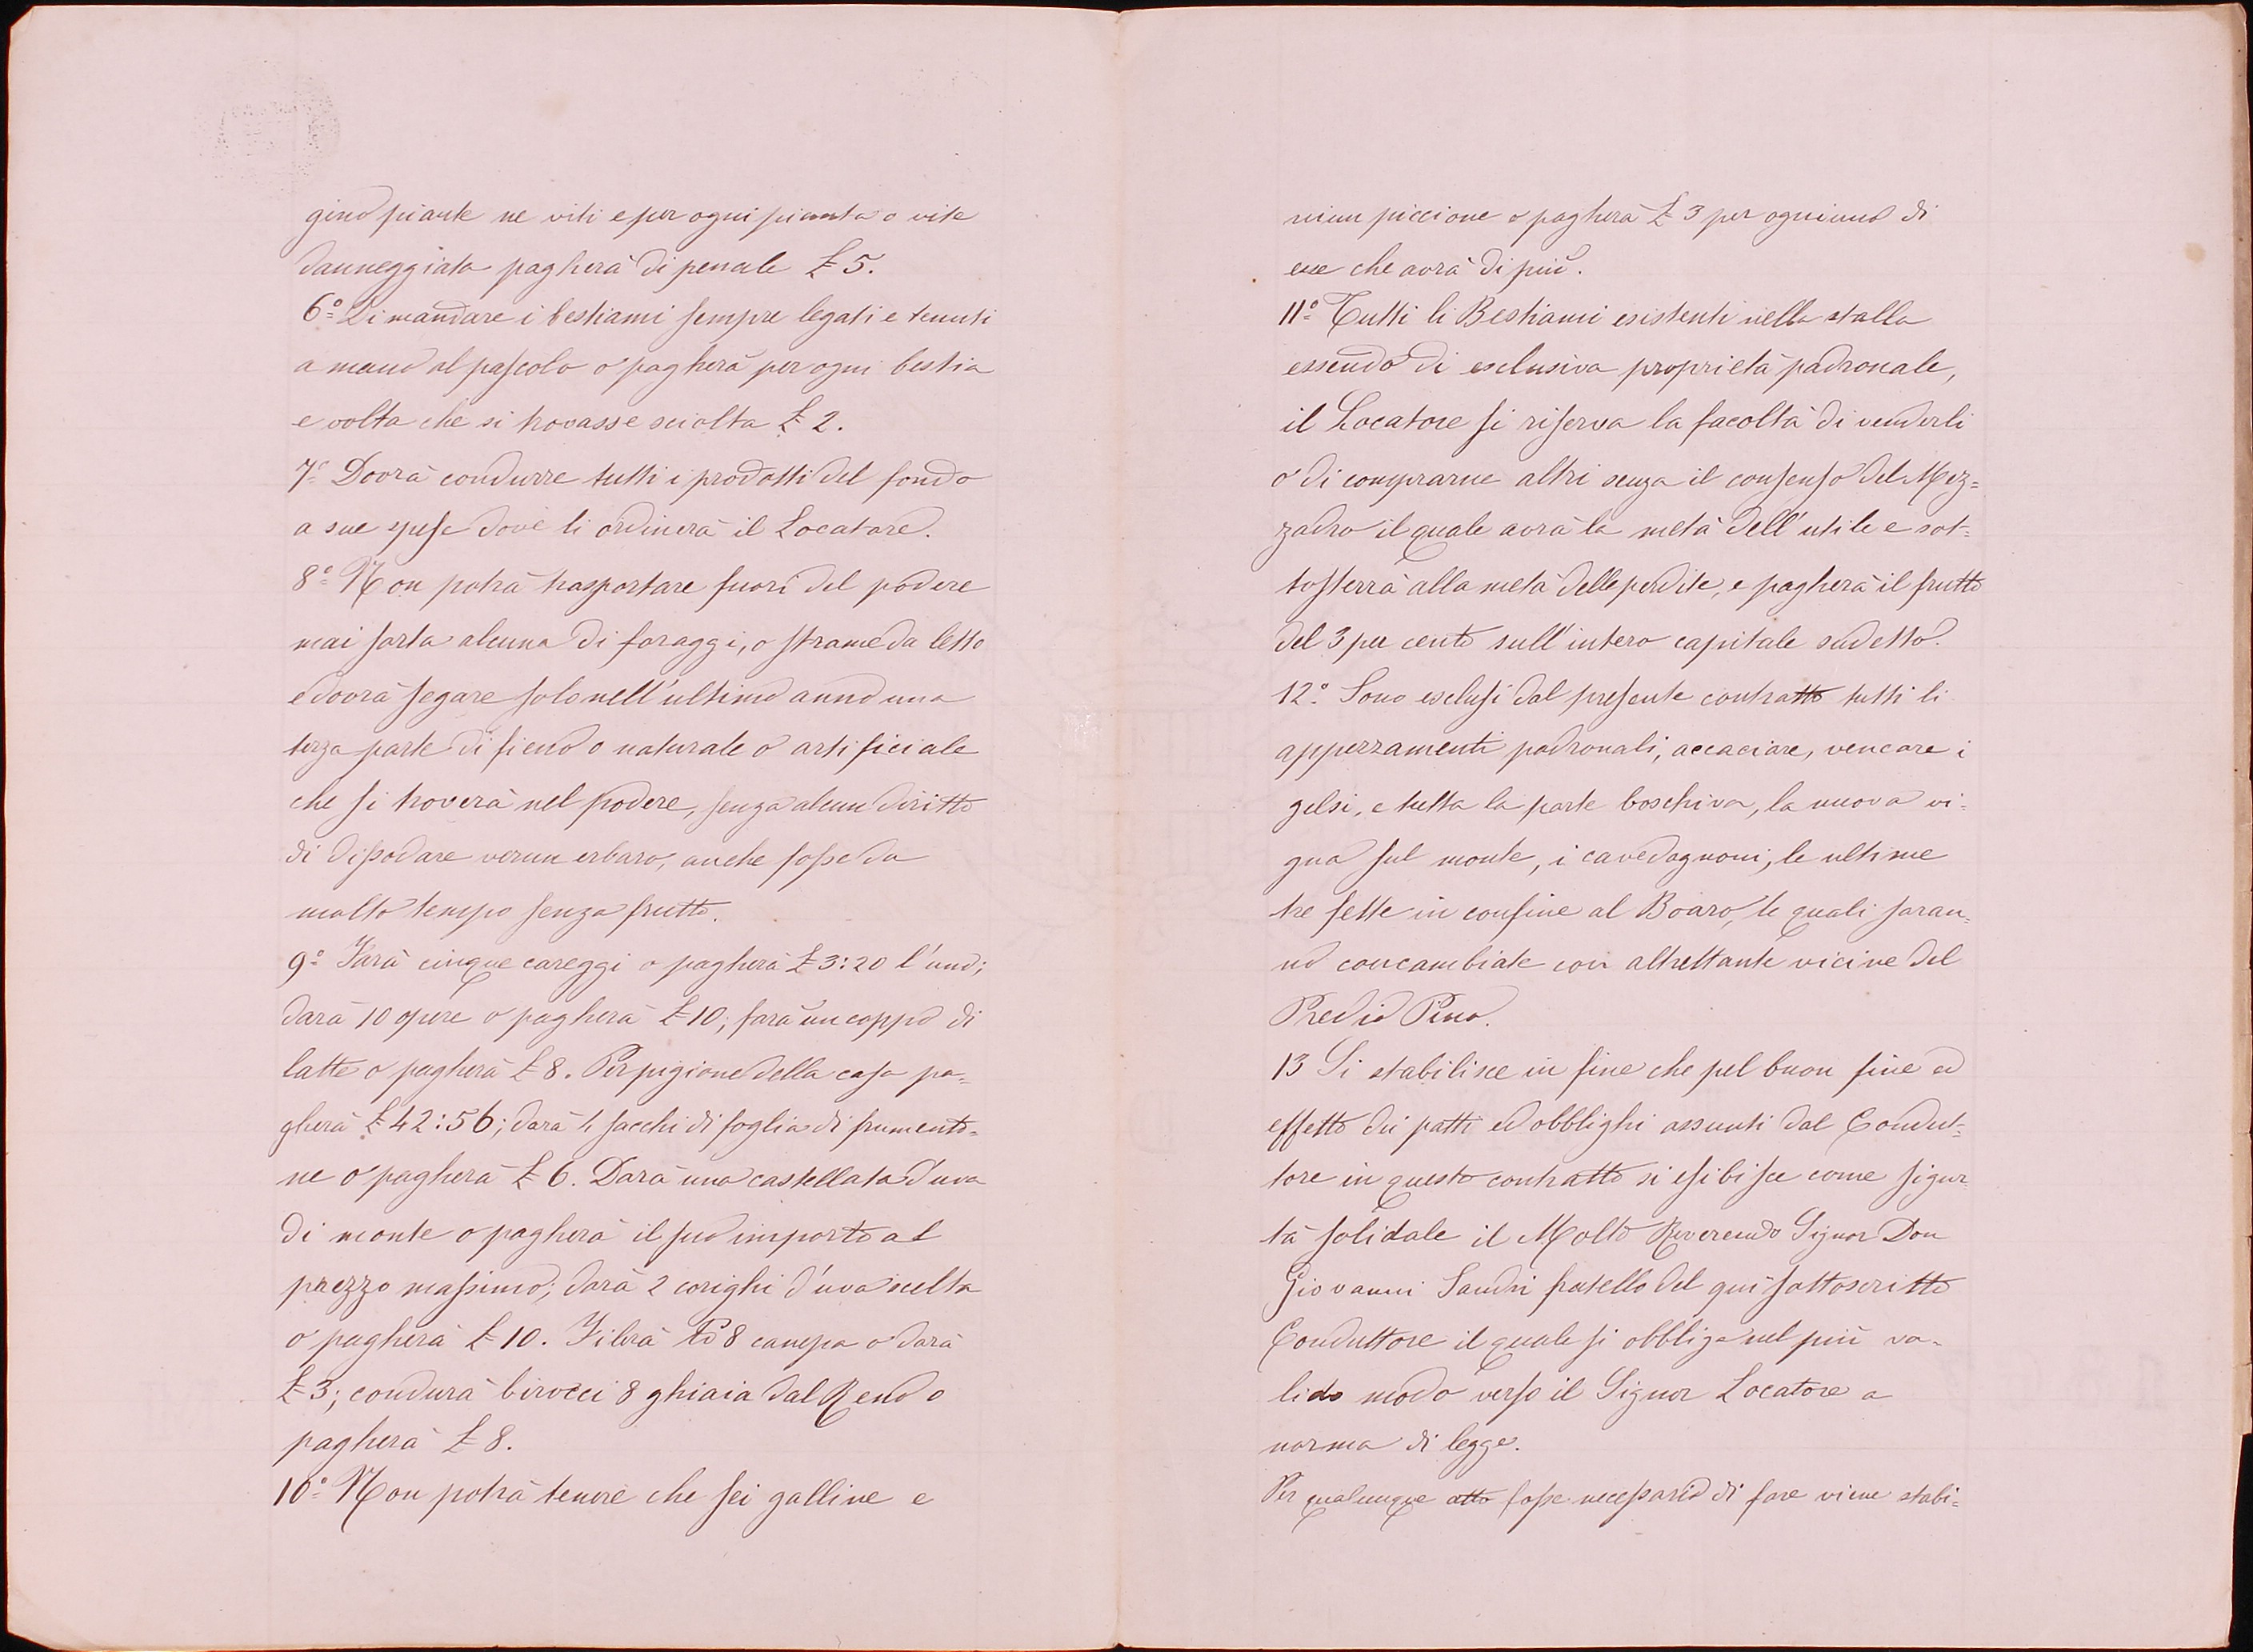 gino piante ne viti e per ogni pianta o vite
danneggiata pagherà di penale £ 5.
6.° Di mandare i bestiami sempre legati e tenuti
a mano al pascolo o pagherà per ogni bestia
e volta che si trovasse sciolta £ 2.
7.° Dovrà condurre tutti i prodotti del fondo
a sue spese dove li ordinerà il Locatore.
8.° Non potrà trasportare fuori del podere
mai sorta alcuna di foraggi, o strame da letto
e dovrà segare solo nell'ultimo anno una
terza parte di fieno o naturale o artificiale
che si troverà nel podere, senza alcun diritto
di dissodare verun erbaro, anche fosse da
molto tempo senza frutto.
9.° Farà cinque careggi o pagherà £ 3:20 l'uno;
darà 10 opere o pagherà £ 10; farà un coppo di
latte o pagherà £ 8. Per pigione della casa pa=
gherà £ 42:56; darà 4 sacchi di foglia di frumento=
ne o pagherà £ 6. Darà una castellata d'uva
di monte o pagherà il suo importo al
prezzo massimo; darà 2 corighi d'uva scelta
o pagherà £ 10. Filerà 8 canepa o darà
£ 3; condurà birocci 8 ghiaia dal Reno o
pagherà £ 8.
10.° Non potrà tenere che sei galline e
niun piccione o pagherà £ 3 per ogniuno di
esse che avrà di più.
11.° Tutti li Bestiami esistenti nella stalla
essendo di esclusiva proprietà padronale,
il Locatore si riserva la facoltà di venderli
o di comprarne altri senza il consenso del Mez=
zadro il quale avrà la metà dell'utile e sot=
tosterrà alla metà delle perdite, e pagherà il frutto
del 3 per cento sull'intero capitale sudetto.
12.° Sono esclusi dal presente contratto tutti li
appezzamenti padronali, accaciare, vencare i
gelsi, e tutta la parte boschiva, la nuova vi=
gna sul monte, i cavedagnoni, le ultime
tre fette in confine al Boaro, le quali saran=
no concambiate con altrettante vicine del
Predio Pino.
13 Si stabilisce in fine che pel buon fine ed
effetto dei patti ed obblighi assunti dal Condut=
tore in questo contratto si esibisce come sigur=
tà solidale il Molto Reverendo Signor Don
Giovanni Sandri fratello del qui sottoscritto
Conduttore il quale si obbliga nel più va=
lido modo verso il Signor Locatore a
norma di legge.
Per qualunque atto fosse necessario di fare viene stabi=